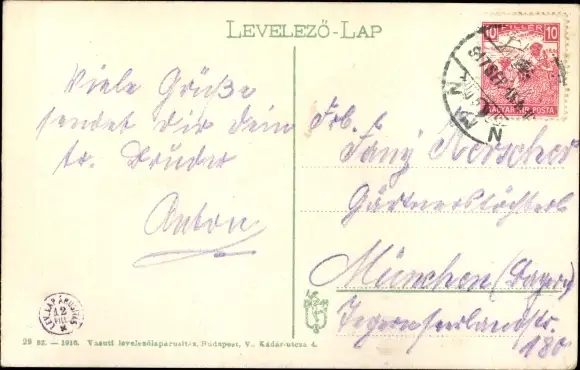 LEVELEZŐ-LAP
Viele Grüße
sendet Dir dein
tr. Bruder
Anton
Frl.
Fany Nerscher
Gärtnerstöchterl
München (Bayern)
Tegernseerlandstr.
180
FILLÉR
10 10
MAGYAR KIR. POSTA
LEV. LAP ÁRUSÍTÁS
12
FILL
29 sz. — 1916. Vasuti levelezőlapárusítás, Budapest, V., Kádár-utcza 4.